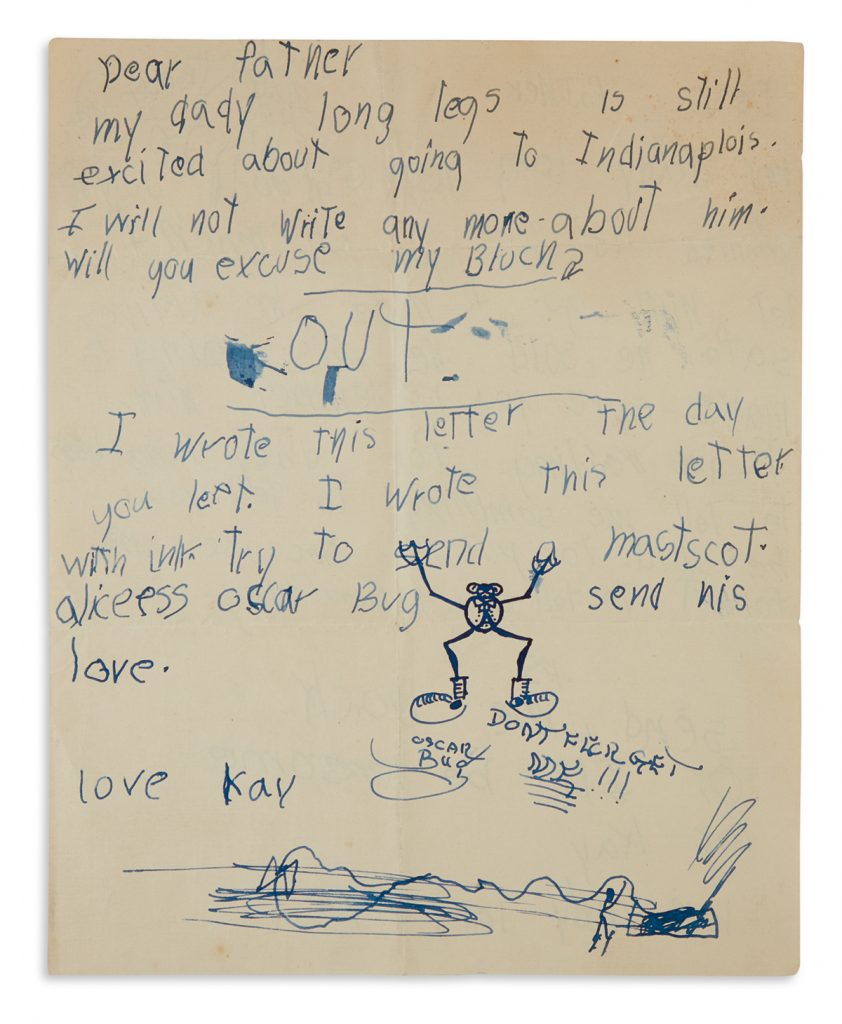 Dear father
my dady long legs is still
excited about going to Indianaplois.
I will not write any more about him.
Will you excuse my Bloch?
OUT
I wrote this letter the day
you left. I wrote this letter
with ink try to send a mastscot.
aliceess oscar Bug send his
love.
OSCAR
BUG
DONT FERGET
ME!!!
love Kay